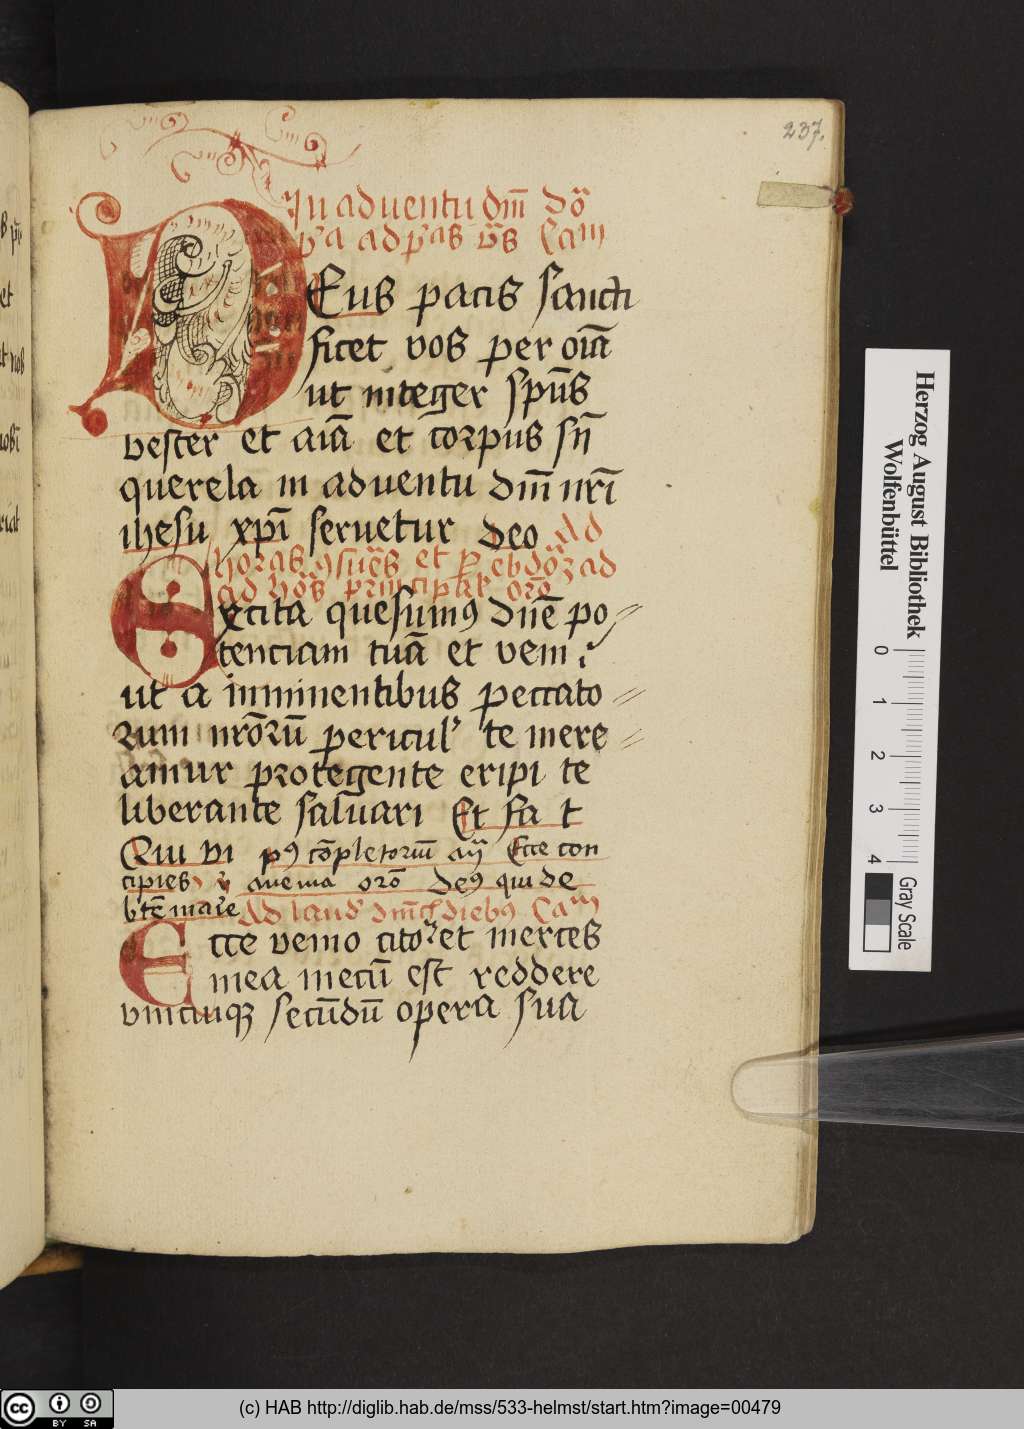 237.
In adventu dm̄ dō
p̄a ad p̄as v̄s Cam
DEus pacis sancti
ficet vos per oīa
ut integer spūs
vester et aīa et corpus sn̄
querela in adventu dm̄ nr̄i
ihesu xp̄i servetur deo Ad
horas ꝯsuēs et p ebdōꝫ ad
ad hōs principal' orō
Excita quesumꝰ dn̄e po
tenciam tuā et veni
ut a inminentibus peccato
rum nr̄ōrū pericul' te mere
amur protegente eripi te
liberante salvari Et fa t
Qui vi pꝰ cōpletoriū an̄ Ecce con
cipies v̄ ave ma orō Deꝰ qui de
btē marie Ad laud' dn̄ic' diebꝰ Cam
Ecce venio cito et merces
mea mecū est reddere
unicuiqꝫ secūdū opera sua
Herzog August Bibliothek
Wolfenbüttel
0 1 2 3 4
Gray Scale
cc BY SA
(c) HAB http://diglib.hab.de/mss/533-helmst/start.htm?image=00479